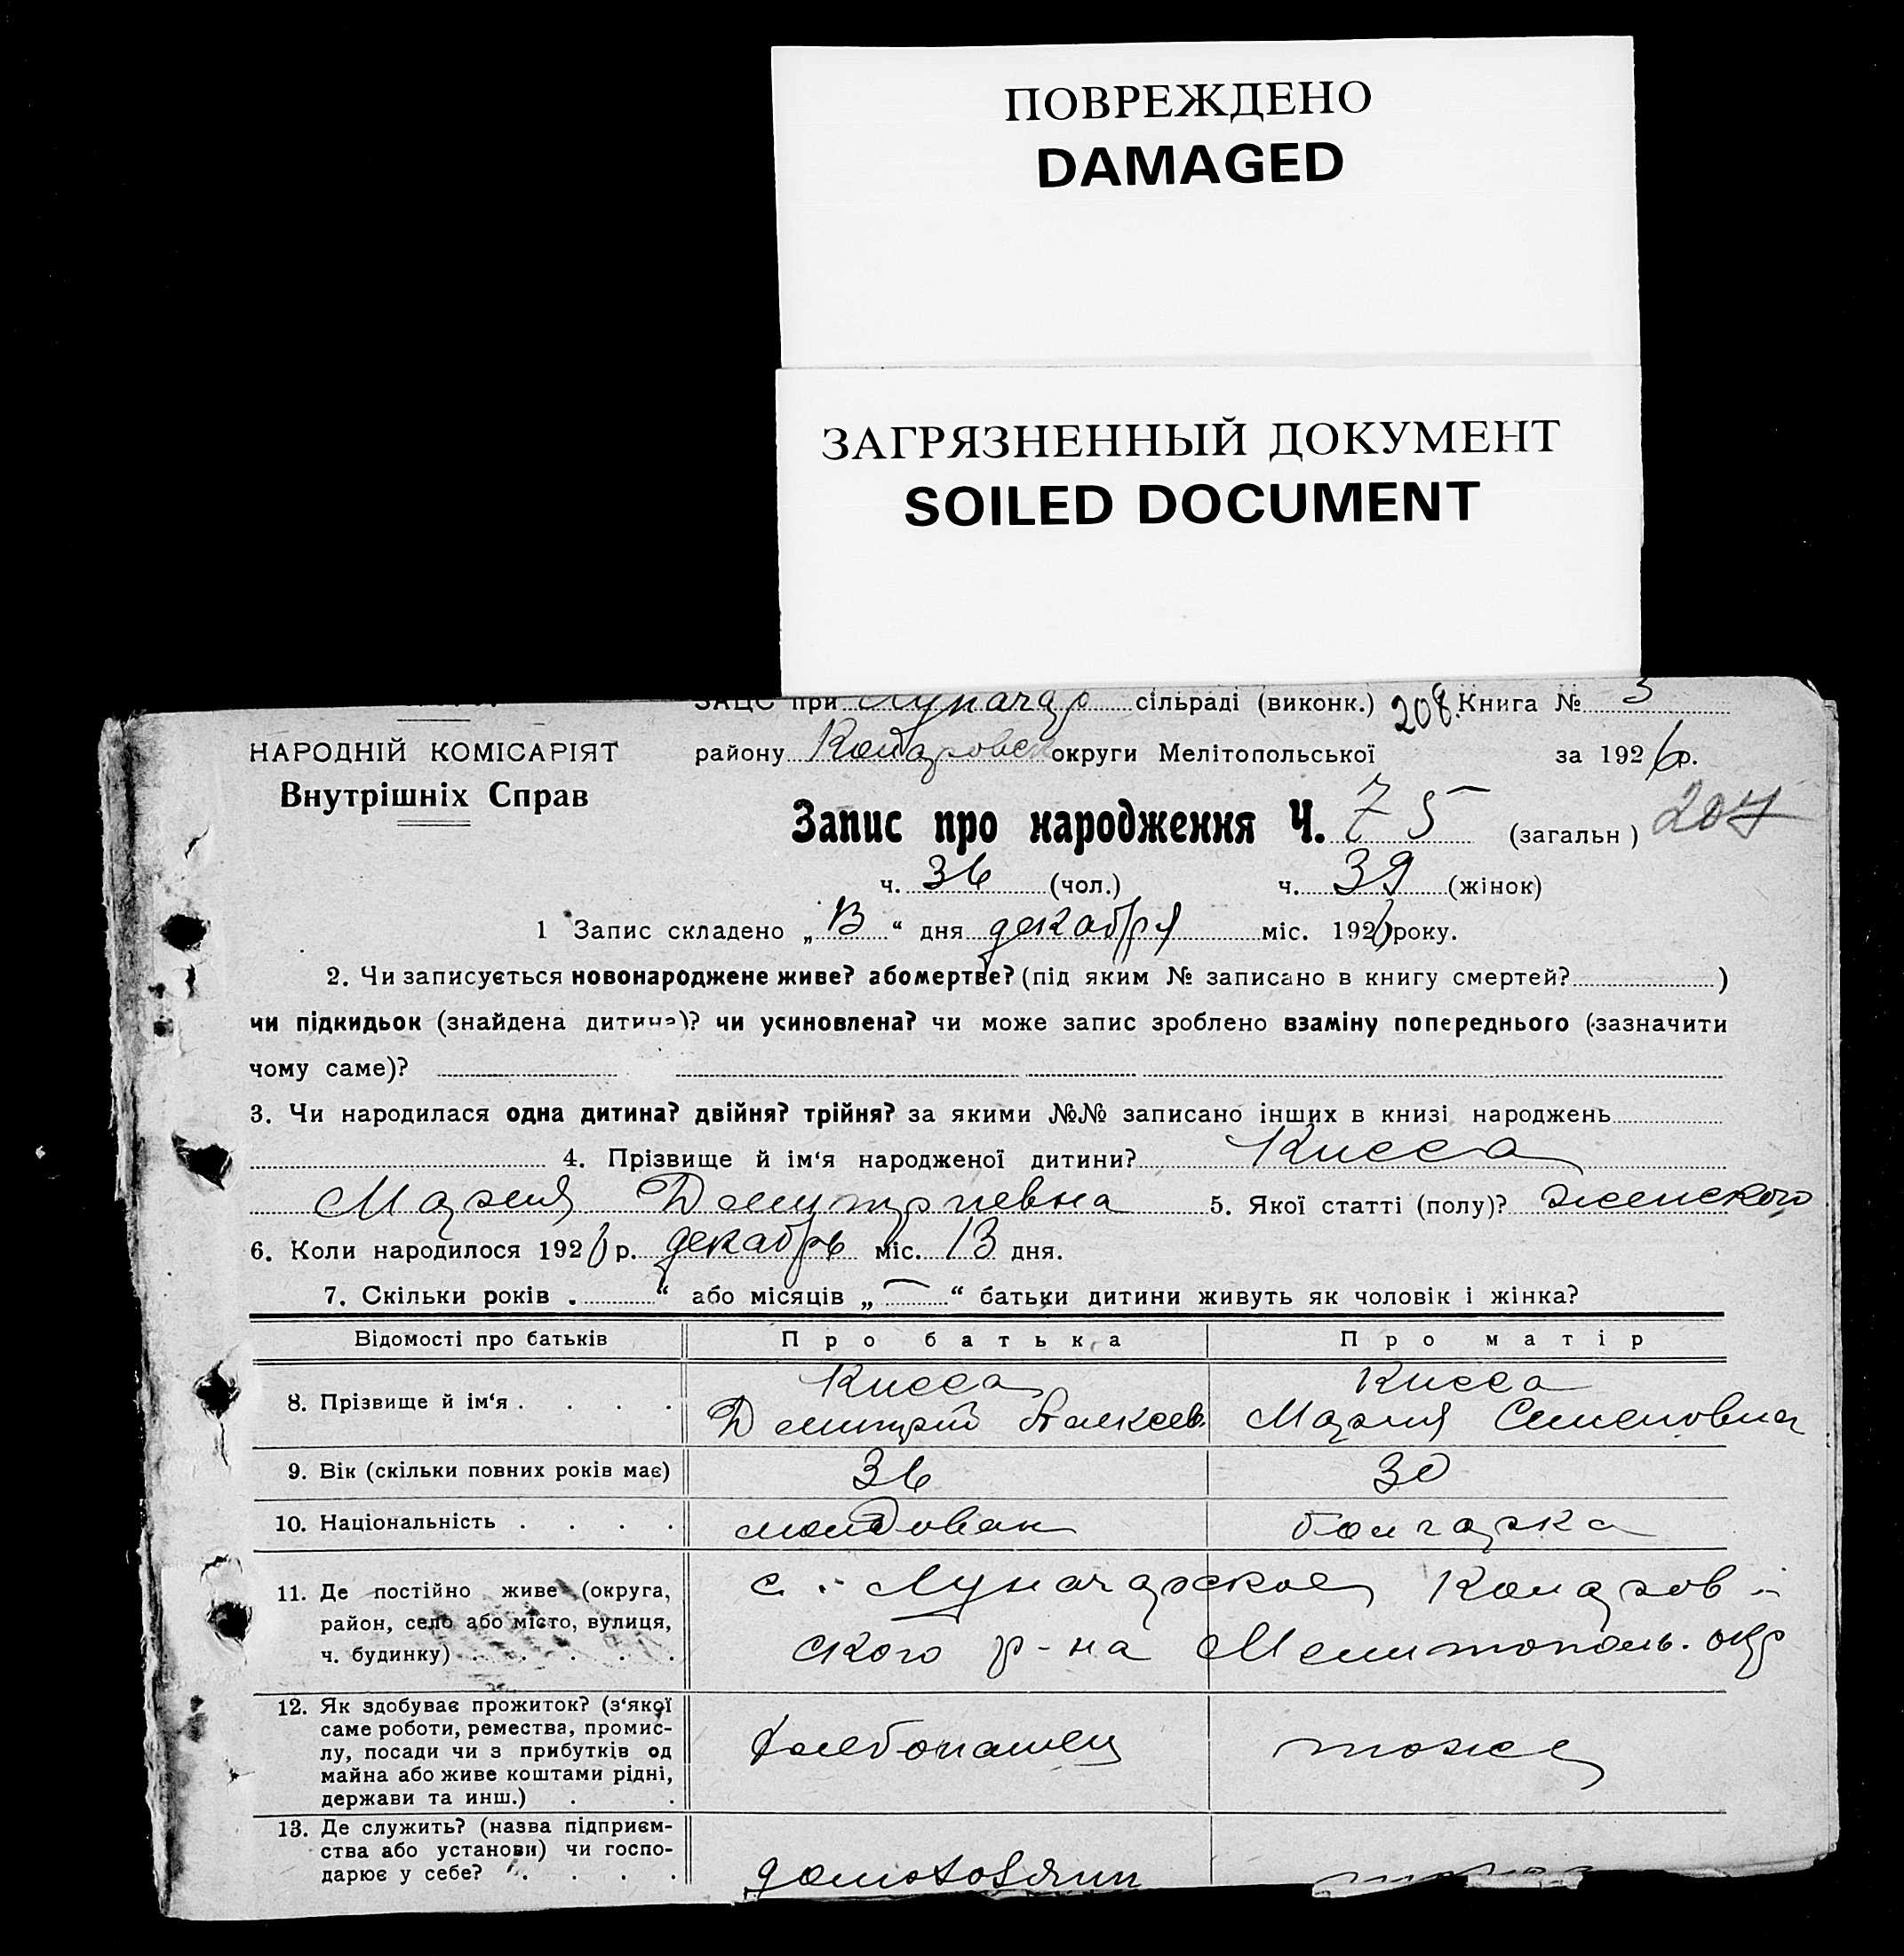 ПОВРЕЖДЕНО
DAMAGED
ЗАГРЯЗНЕННЫЙ ДОКУМЕНТ
SOILED DOCUMENT
ЗАЦС при Луначар сільраді (виконк.) 208. Книга № 3
НАРОДНІЙ КОМІСАРІЯТ
району округи Мелітопольської за 1926 р.
Внутрішніх Справ
Запис про народження Ч. 75 (загальн) 207
ч. 36 (чол.) ч. 39 (жінок)
1 Запис складено „13“ дня декабря міс. 1926 року.
2. Чи записується новонароджене живе? або мертве? (під яким № записано в книгу смертей? )
чи підкидьок (знайдена дитина)? чи усиновлена? чи може запис зроблено взаміну попереднього (зазначити
чому саме)?
3. Чи народилася одна дитина? двійня? трійня? за якими №№ записано інших в книзі народжень
4. Прізвище й ім‘я народженої дитини? Кисса
Мария Дмитриевна 5. Якої статті (полу)? женского
6. Коли народилося 1926 р. декабрь міс. 13 дня.
7. Скільки років „ “ або місяців „—“ батьки дитини живуть як чоловік і жінка?
Відомості про батьків Про батька Про матір
8. Прізвище й ім‘я . . . . Кисса Кисса
Дмитрий Алексеев. Мария Семеновна
9. Вік (скільки повних років має) 36 30
10. Національність . . . . молдован болгарка
11. Де постійно живе (округа, с. Луначарское Комаров-
район, село або місто, вулиця,
ч. будинку) . . . . . ского р-на Мелитополь. окр
12. Як здобуває прожиток? (з‘якої
саме роботи, ремества, промис-
лу, посади чи з прибутків од хлебопашец тоже
майна або живе коштами рідні,
держави та инш.) . .
13. Де служить? (назва підприєм-
ства або установи) чи госпо-
дарює у себе? . . . . домохозяин